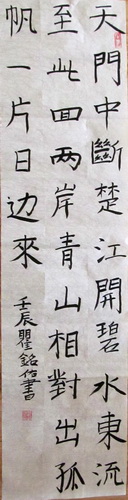 天門中斷楚江開碧水東流
至此回两岸青山相對出孤
帆一片日边來
壬辰瞿銘作書